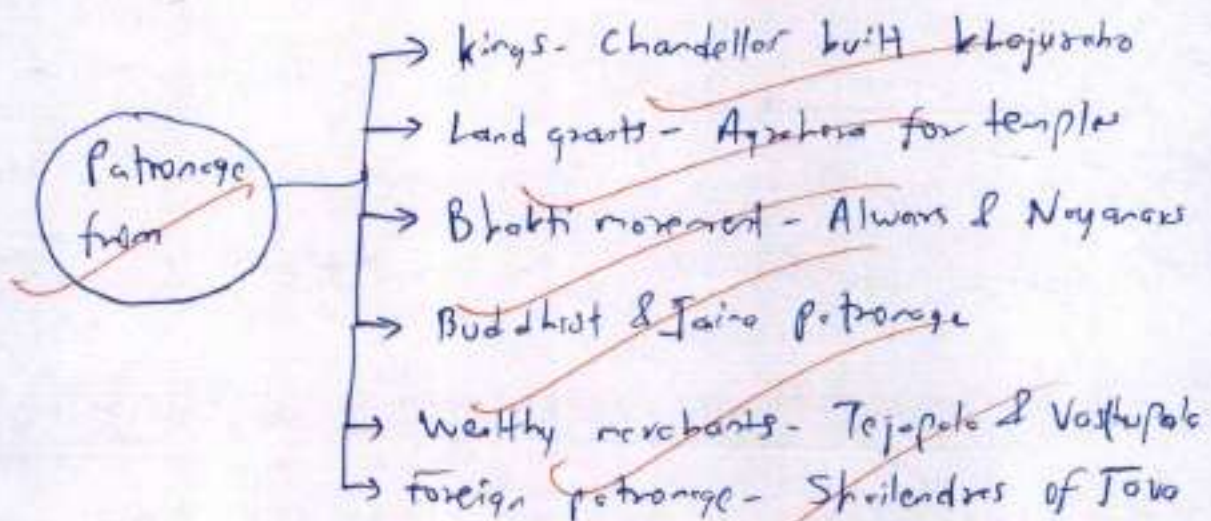 Patronage
from
→ Kings - Chandellas built Khajuraho
→ Land grants - Agrahara for temples
→ Bhakti movement - Alwars & Nayanars
→ Buddhist & Jaina patronage
→ Wealthy merchants - Tejapala & Vasthupala
→ Foreign patronage - Shailendras of Java